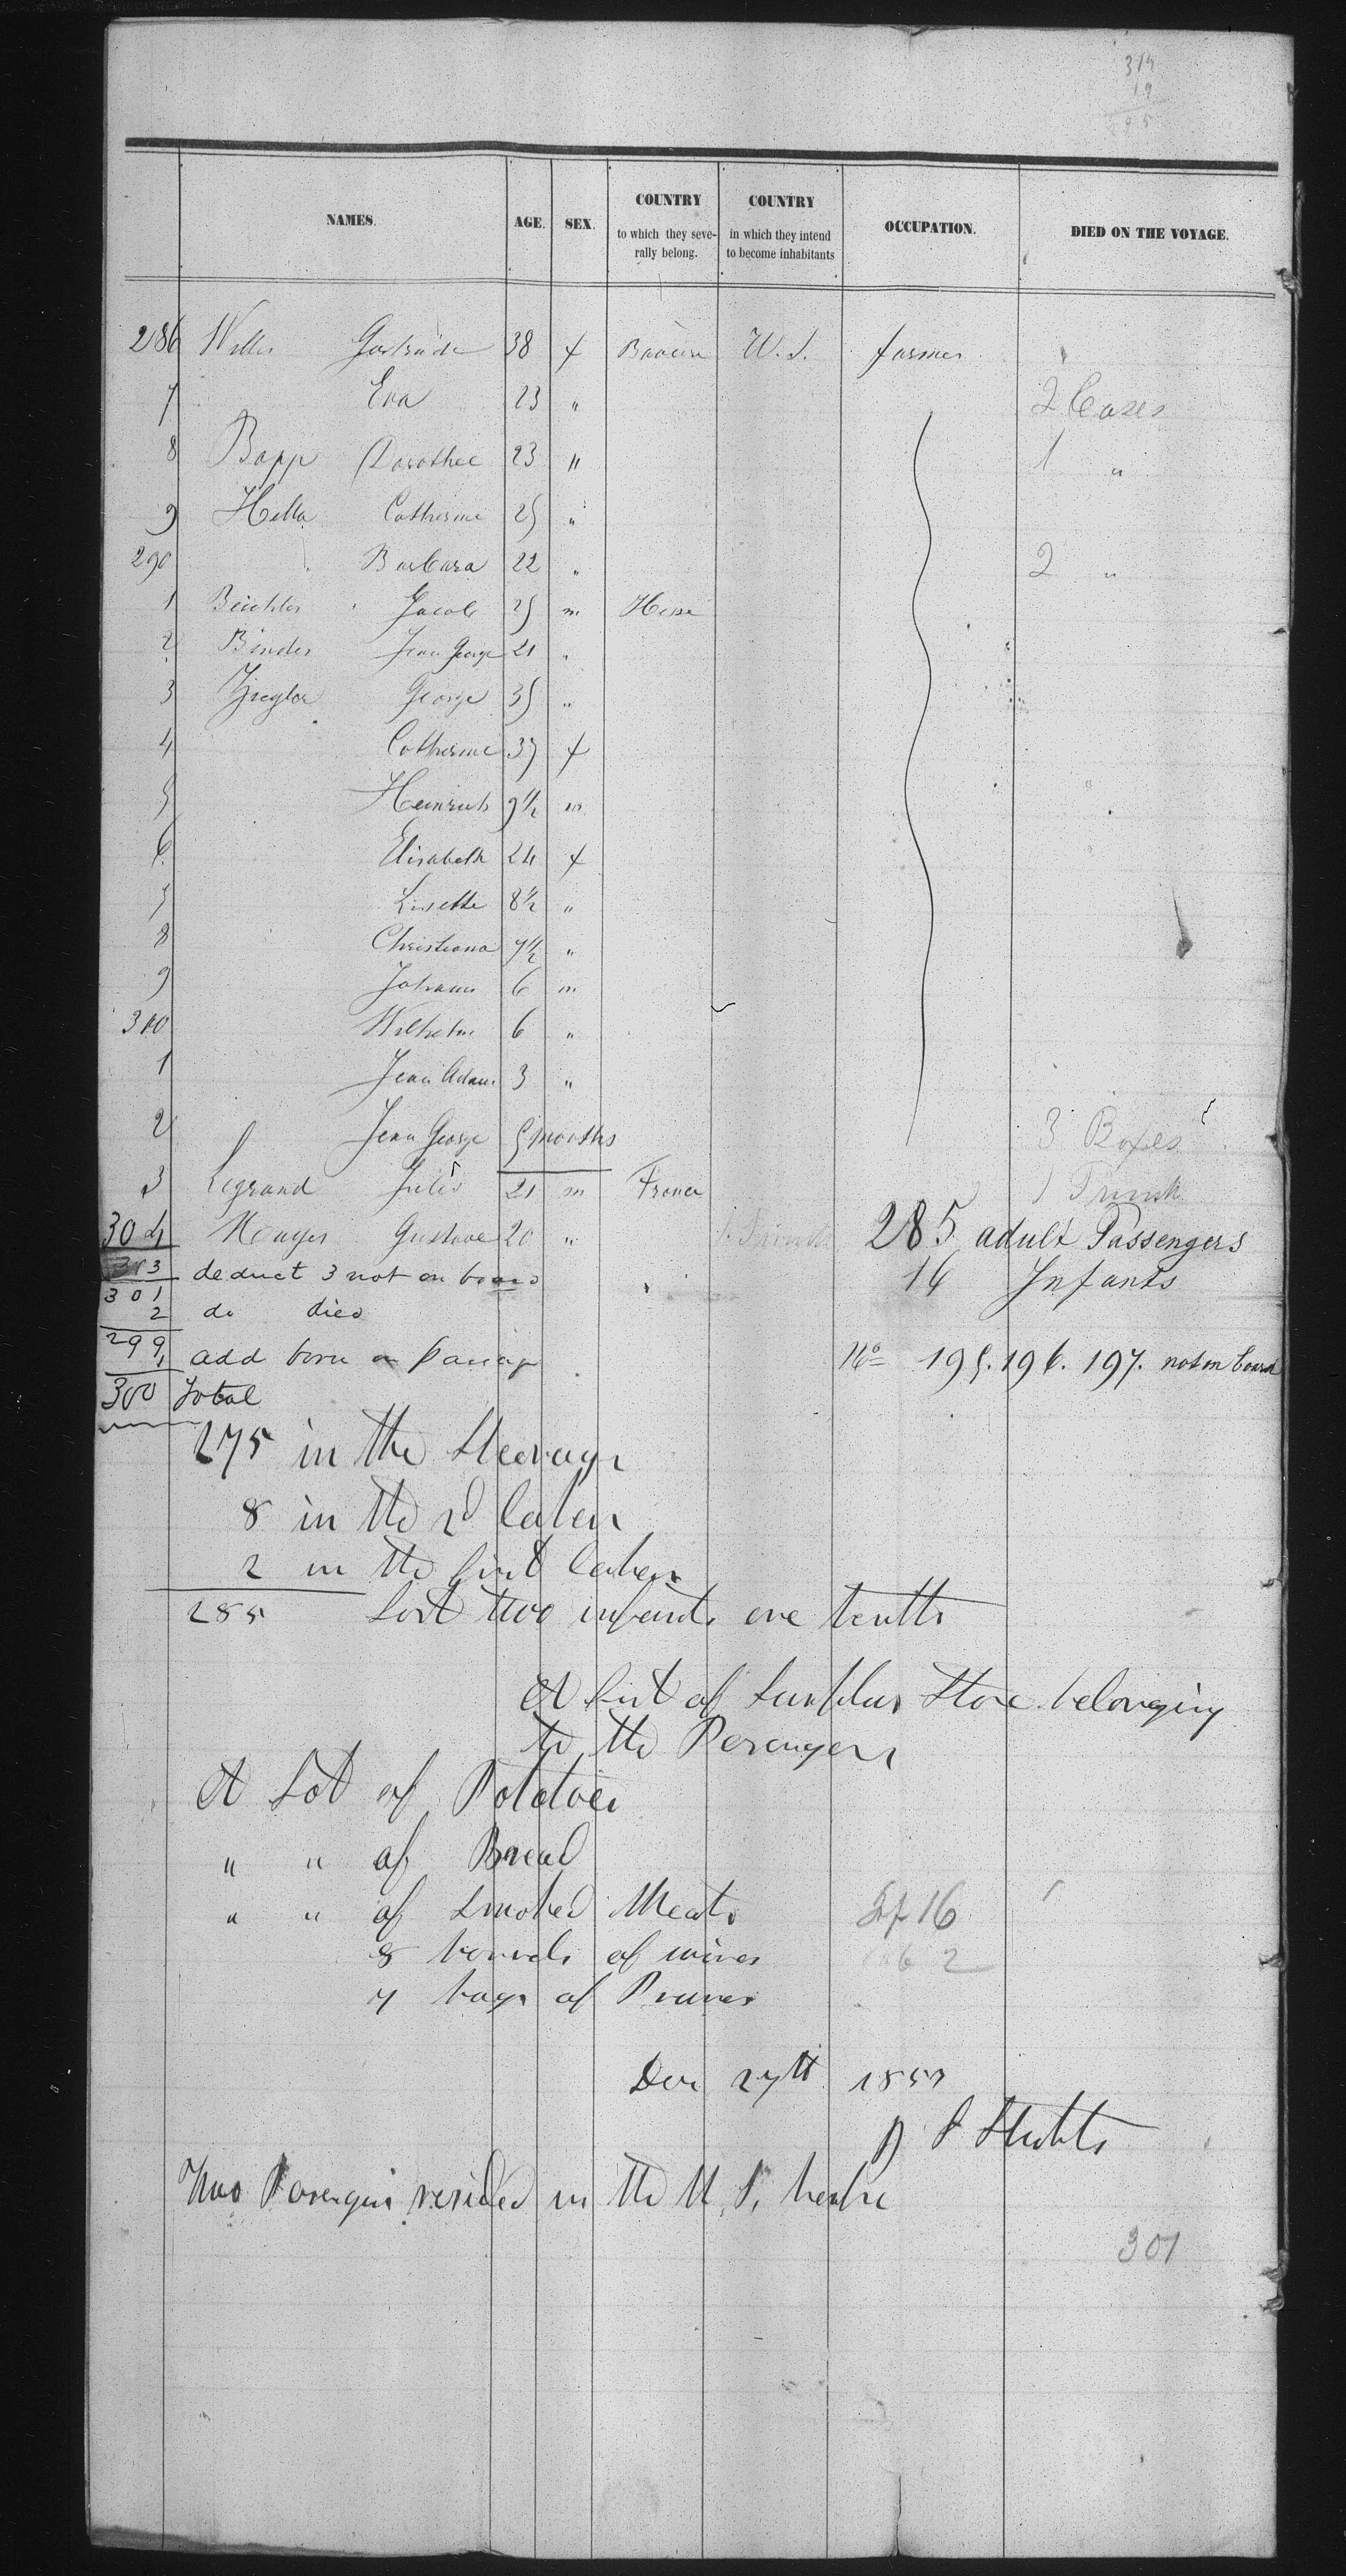 319
19
NAMES. AGE. SEX. COUNTRY to which they seve- rally belong. COUNTRY in which they intend to become inhabitants OCCUPATION. DIED ON THE VOYAGE.
286 Weller Gertrude 38 f U.S. farmer
7 Eva 23 " 2 Cases
8 Bapp Dorothee 23 " 1 "
9 Hella Catherine 25 "
290 Barbara 22 " 2 "
1 Jacob 25 m Hesse
2 Binder Jean George 21 "
3 Ziegler George 35 "
4 Catherine 37 f
5 Heinrich 9 1/2 m
6 Elisabeth 24 f
7 Lisette 8 1/2 "
8 Christiana 7 1/2 "
9 Johann 6 m
300 Wilhelm 6 "
1 Jean Adam 3 "
2 Jean George 5 months 3 Boxes
3 Legrand Jules 21 m France 1 Trunk
304 Gustave 20 " 1 Trunk 285 adult Passengers
3 deduct 3 not on board 16 Infants
301
2 do died
299
1 add born on passage No 195. 196. 197. not on board
300 Total
275 in the Steerage
8 in the 2d Caben
2 in the first Caben
285 Lost two infants one tenth
A List of Surplus Store belonging
to the Pasengers
A Lot of Potatoes
" " of Bread
" " of Smoked Meats
8 barrels of wines
7 bags of Prunes
16
2
Dec 27th 185
Stubbs
Two Pasengers resided in the U.S. before
301